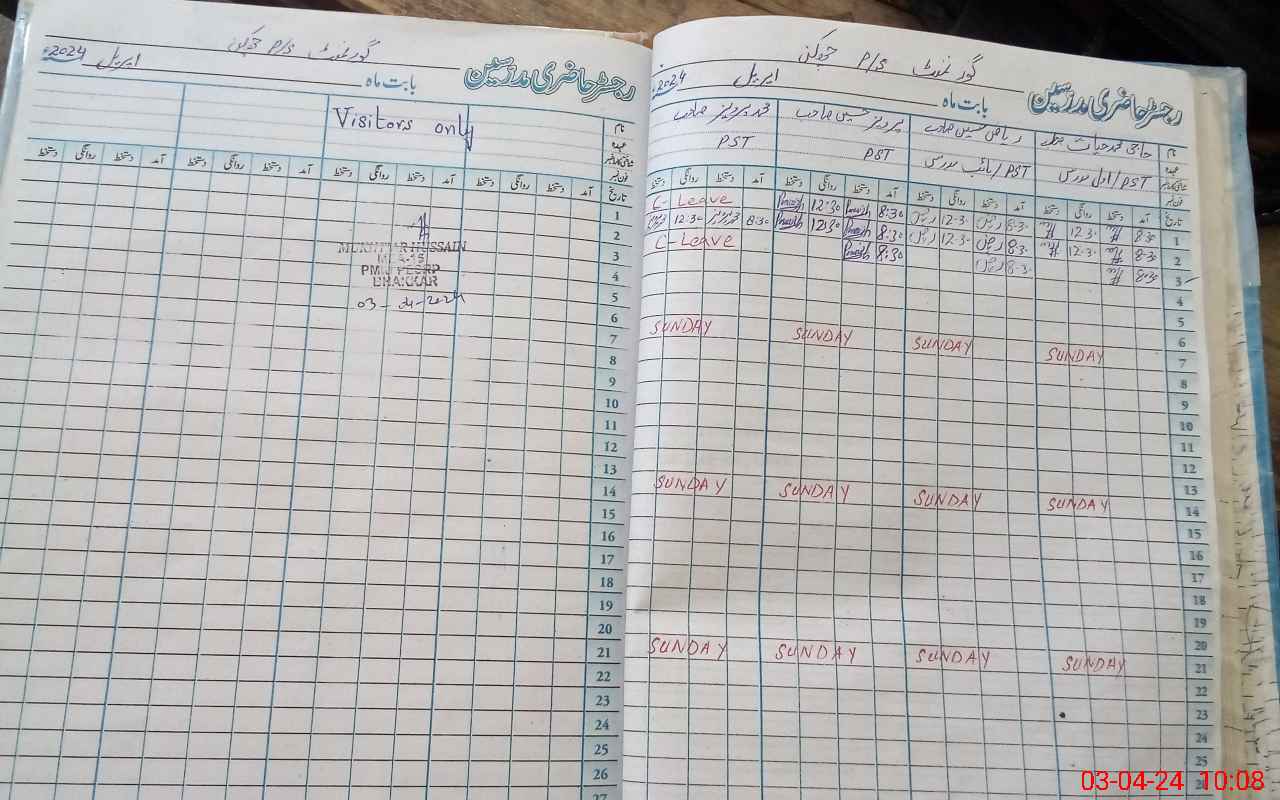 گورنمنٹ P/S
رجسٹر حاضری مدرسین
بابت ماہ اپریل 2024ء
Visitors only
نام
عہدہ
شناختی کارڈ نمبر
فون نمبر
تاریخ آمد دستخط روانگی دستخط آمد دستخط روانگی دستخط آمد دستخط روانگی دستخط آمد دستخط روانگی دستخط
1
2
3
4
5
6
7
8
9
10
11
12
13
14
15
16
17
18
19
20
21
22
23
24
25
26
27
MUKHTAR HUSSAIN
BHAKKAR
03-04-2024
گورنمنٹ P/S
رجسٹر حاضری مدرسین
بابت ماہ اپریل 2024ء
نام حاجی محمد حیات ریاض حسین صاحب پرویز حسین صاحب محمد پرویز صاحب
عہدہ PST/اول مدرس PST/نائب مدرس PST PST
شناختی کارڈ نمبر
فون نمبر
تاریخ آمد دستخط روانگی دستخط آمد دستخط روانگی دستخط آمد دستخط روانگی دستخط آمد دستخط روانگی دستخط
1 8:30 12:30 8:30 12:30 8:30 12:30 C-Leave
2 8:30 12:30 8:30 12:30 8:30 12:30 8:30 12:30
3 8:30 8:30 8:30 C-Leave
4
5
6
7 SUNDAY SUNDAY SUNDAY SUNDAY
8
9
10
11
12
13
14 SUNDAY SUNDAY SUNDAY SUNDAY
15
16
17
18
19
20
21 SUNDAY SUNDAY SUNDAY SUNDAY
22
23
24
25
03-04-24 10:08